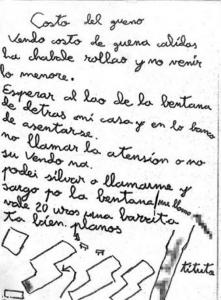 Costo del gueno
Vendo costo de guena calidas
ha chabale rollao y no venir
lo menore.
Esperar al lao de la bentana
de detras mi casa y en lo banco
de asentarse.
no llamar la atension o no
su vendo na.
podei silvar o llamarme y
sargo po la bentana/me llamo
vale 20 uros una barrita
ta bien. planos
tituta